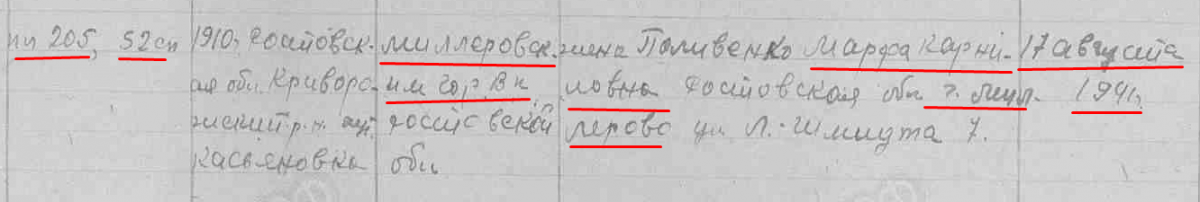 пп 205, 52 сп 1910, Ростовск- миллеровск- жена Поливенко Марфа Карни- 17 августа
ая обл. Криворо- им гор. В к ловна Ростовская обл г. Мил- 1941.
жский р-н. хут. Ростовской лерово ул Л.-Шмидта 7.
Касьяновка обл.